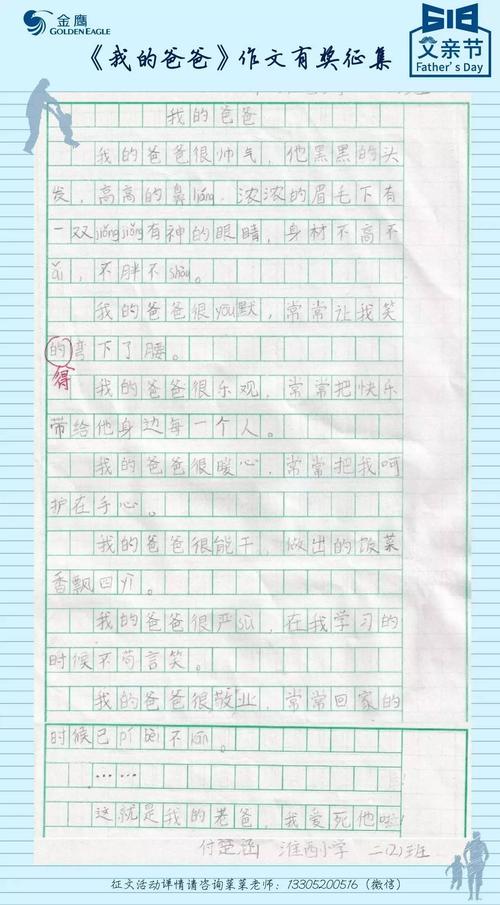 金鹰
GOLDEN EAGLE
618
父亲节
Father's Day
《我的爸爸》作文有奖征集
我的爸爸
我的爸爸很帅气，他黑黑的头
发，高高的鼻liáng，浓浓的眉毛下有
一双jiǒngjiǒng有神的眼睛，身材不高不
ǎi，不胖不shòu。
我的爸爸很yōu默，常常让我笑
的弯下了腰。
得
我的爸爸很乐观，常常把快乐
带给他身边每一个人。
我的爸爸很暖心，常常把我呵
护在手心。
我的爸爸很能干，做出的饭菜
香飘四
我的爸爸很严sù，在我学习的
时候不苟言笑。
我的爸爸很敬业，常常回家的
时候已pí bèi不kān。
……
这就是我的老爸，我爱死他啦
付楚涵 淮西小学 二(2)班
征文活动详情请咨询菜菜老师：13305200516（微信）